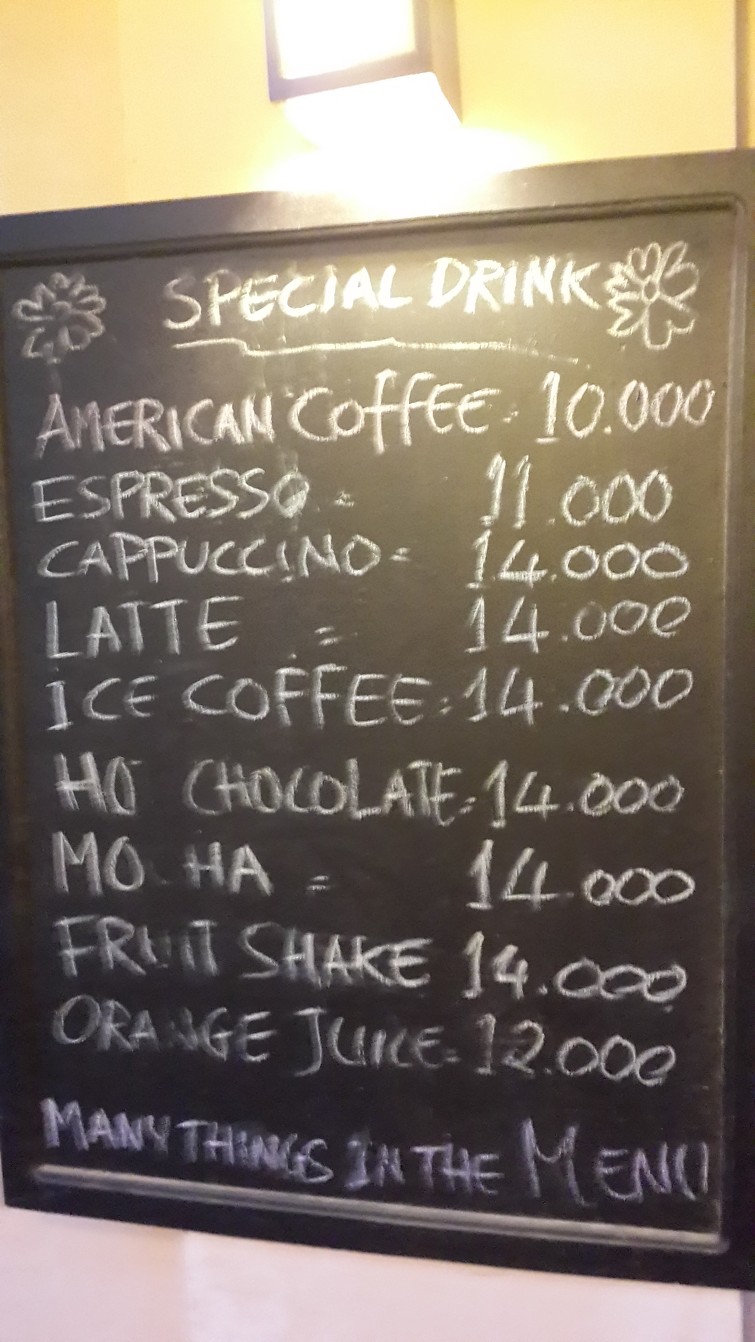 SPECIAL DRINK
AMERICAN COFFEE = 10.000
ESPRESSO = 11.000
CAPPUCCINO = 14.000
LATTE = 14.000
ICE COFFEE = 14.000
HO CHOCOLATE = 14.000
MO HA = 14.000
FRUIT SHAKE 14.000
ORANGE JUICE = 12.000
MANY THINGS IN THE MENU